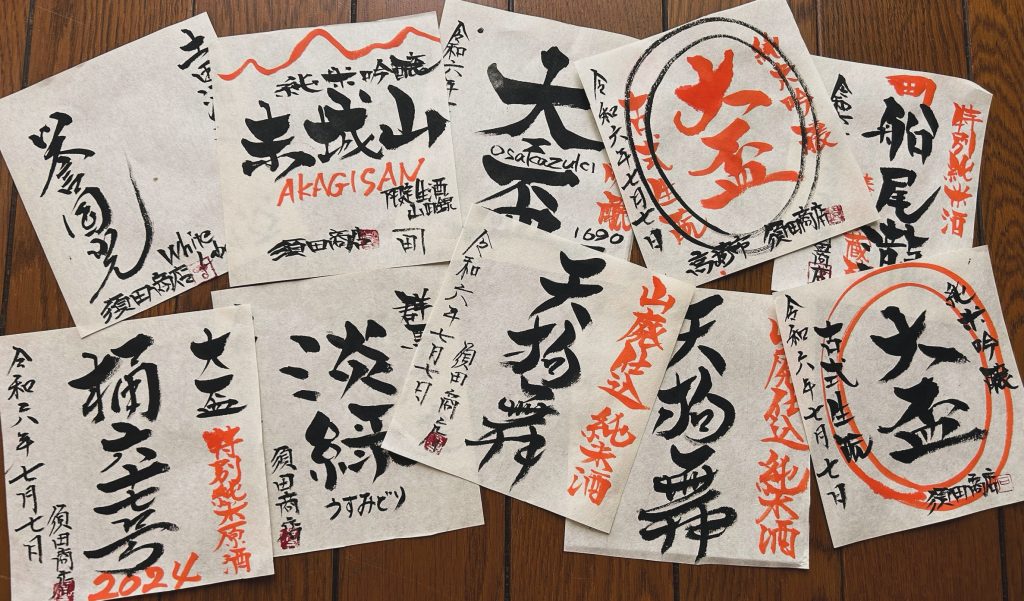 須田商店
純米吟醸
赤城山
AKAGISAN
限定生酒
須田商店
令和六年
大盃
osakazuki
1690
純米吟醸
大盃
古式生酛
令和六年七月七日
高崎市
須田商店
特別純米酒
船尾瀧
大盃
桶六十七号
特別純米原酒
令和六年七月七日
須田商店
2024
淡緑
うすみどり
須田商店
山廃仕込
純米酒
天狗舞
令和六年七月七日
須田商店
山廃仕込
純米酒
天狗舞
純米吟醸
大盃
古式生酛
令和六年七月七日
須田商店